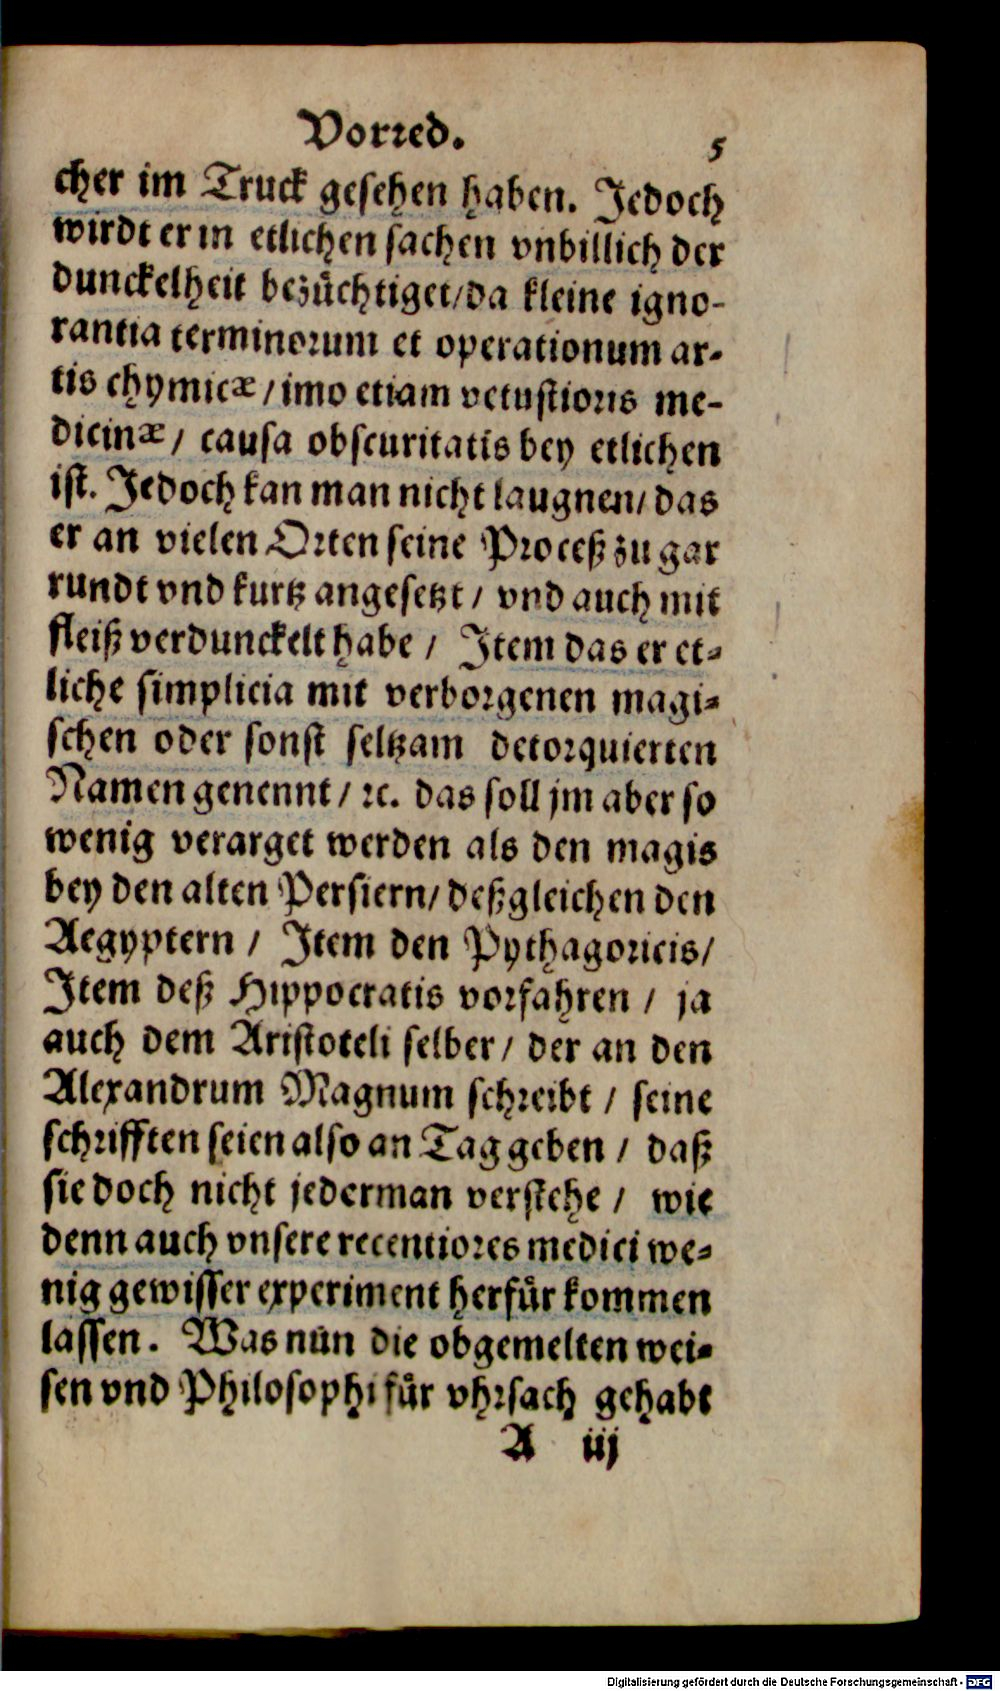 Vorred.
5
cher im Truck gesehen haben. Jedoch
wirdt er in etlichen sachen vnbillich der
dunckelheit bezüchtiget/da kleine igno-
rantia terminorum et operationum ar-
tis chymicæ/imo etiam vetustioris me-
dicinæ/ causa obscuritatis bey etlichen
ist. Jedoch kan man nicht laugnen/das
er an vielen Orten seine Proceß zu gar
rundt vnd kurtz angesetzt/ vnd auch mit
fleiß verdunckelt habe/ Item das er et-
liche simplicia mit verborgenen magi-
schen oder sonst seltzam detorquierten
Namen genennt/ ꝛc. das soll jm aber so
wenig verarget werden als den magis
bey den alten Persiern/deßgleichen den
Aegyptern/ Item den Pythagoricis/
Item deß Hippocratis vorfahren/ ja
auch dem Aristoteli selber/ der an den
Alexandrum Magnum schreibt/ seine
schrifften seien also an Tag geben/ daß
sie doch nicht jederman verstehe/ wie
denn auch vnsere recentiores medici we-
nig gewisser experiment herfür kommen
lassen. Was nün die obgemelten wei-
sen vnd Philosophi für vhrsach gehabt
A iij
Digitalisierung gefördert durch die Deutsche Forschungsgemeinschaft - DFG